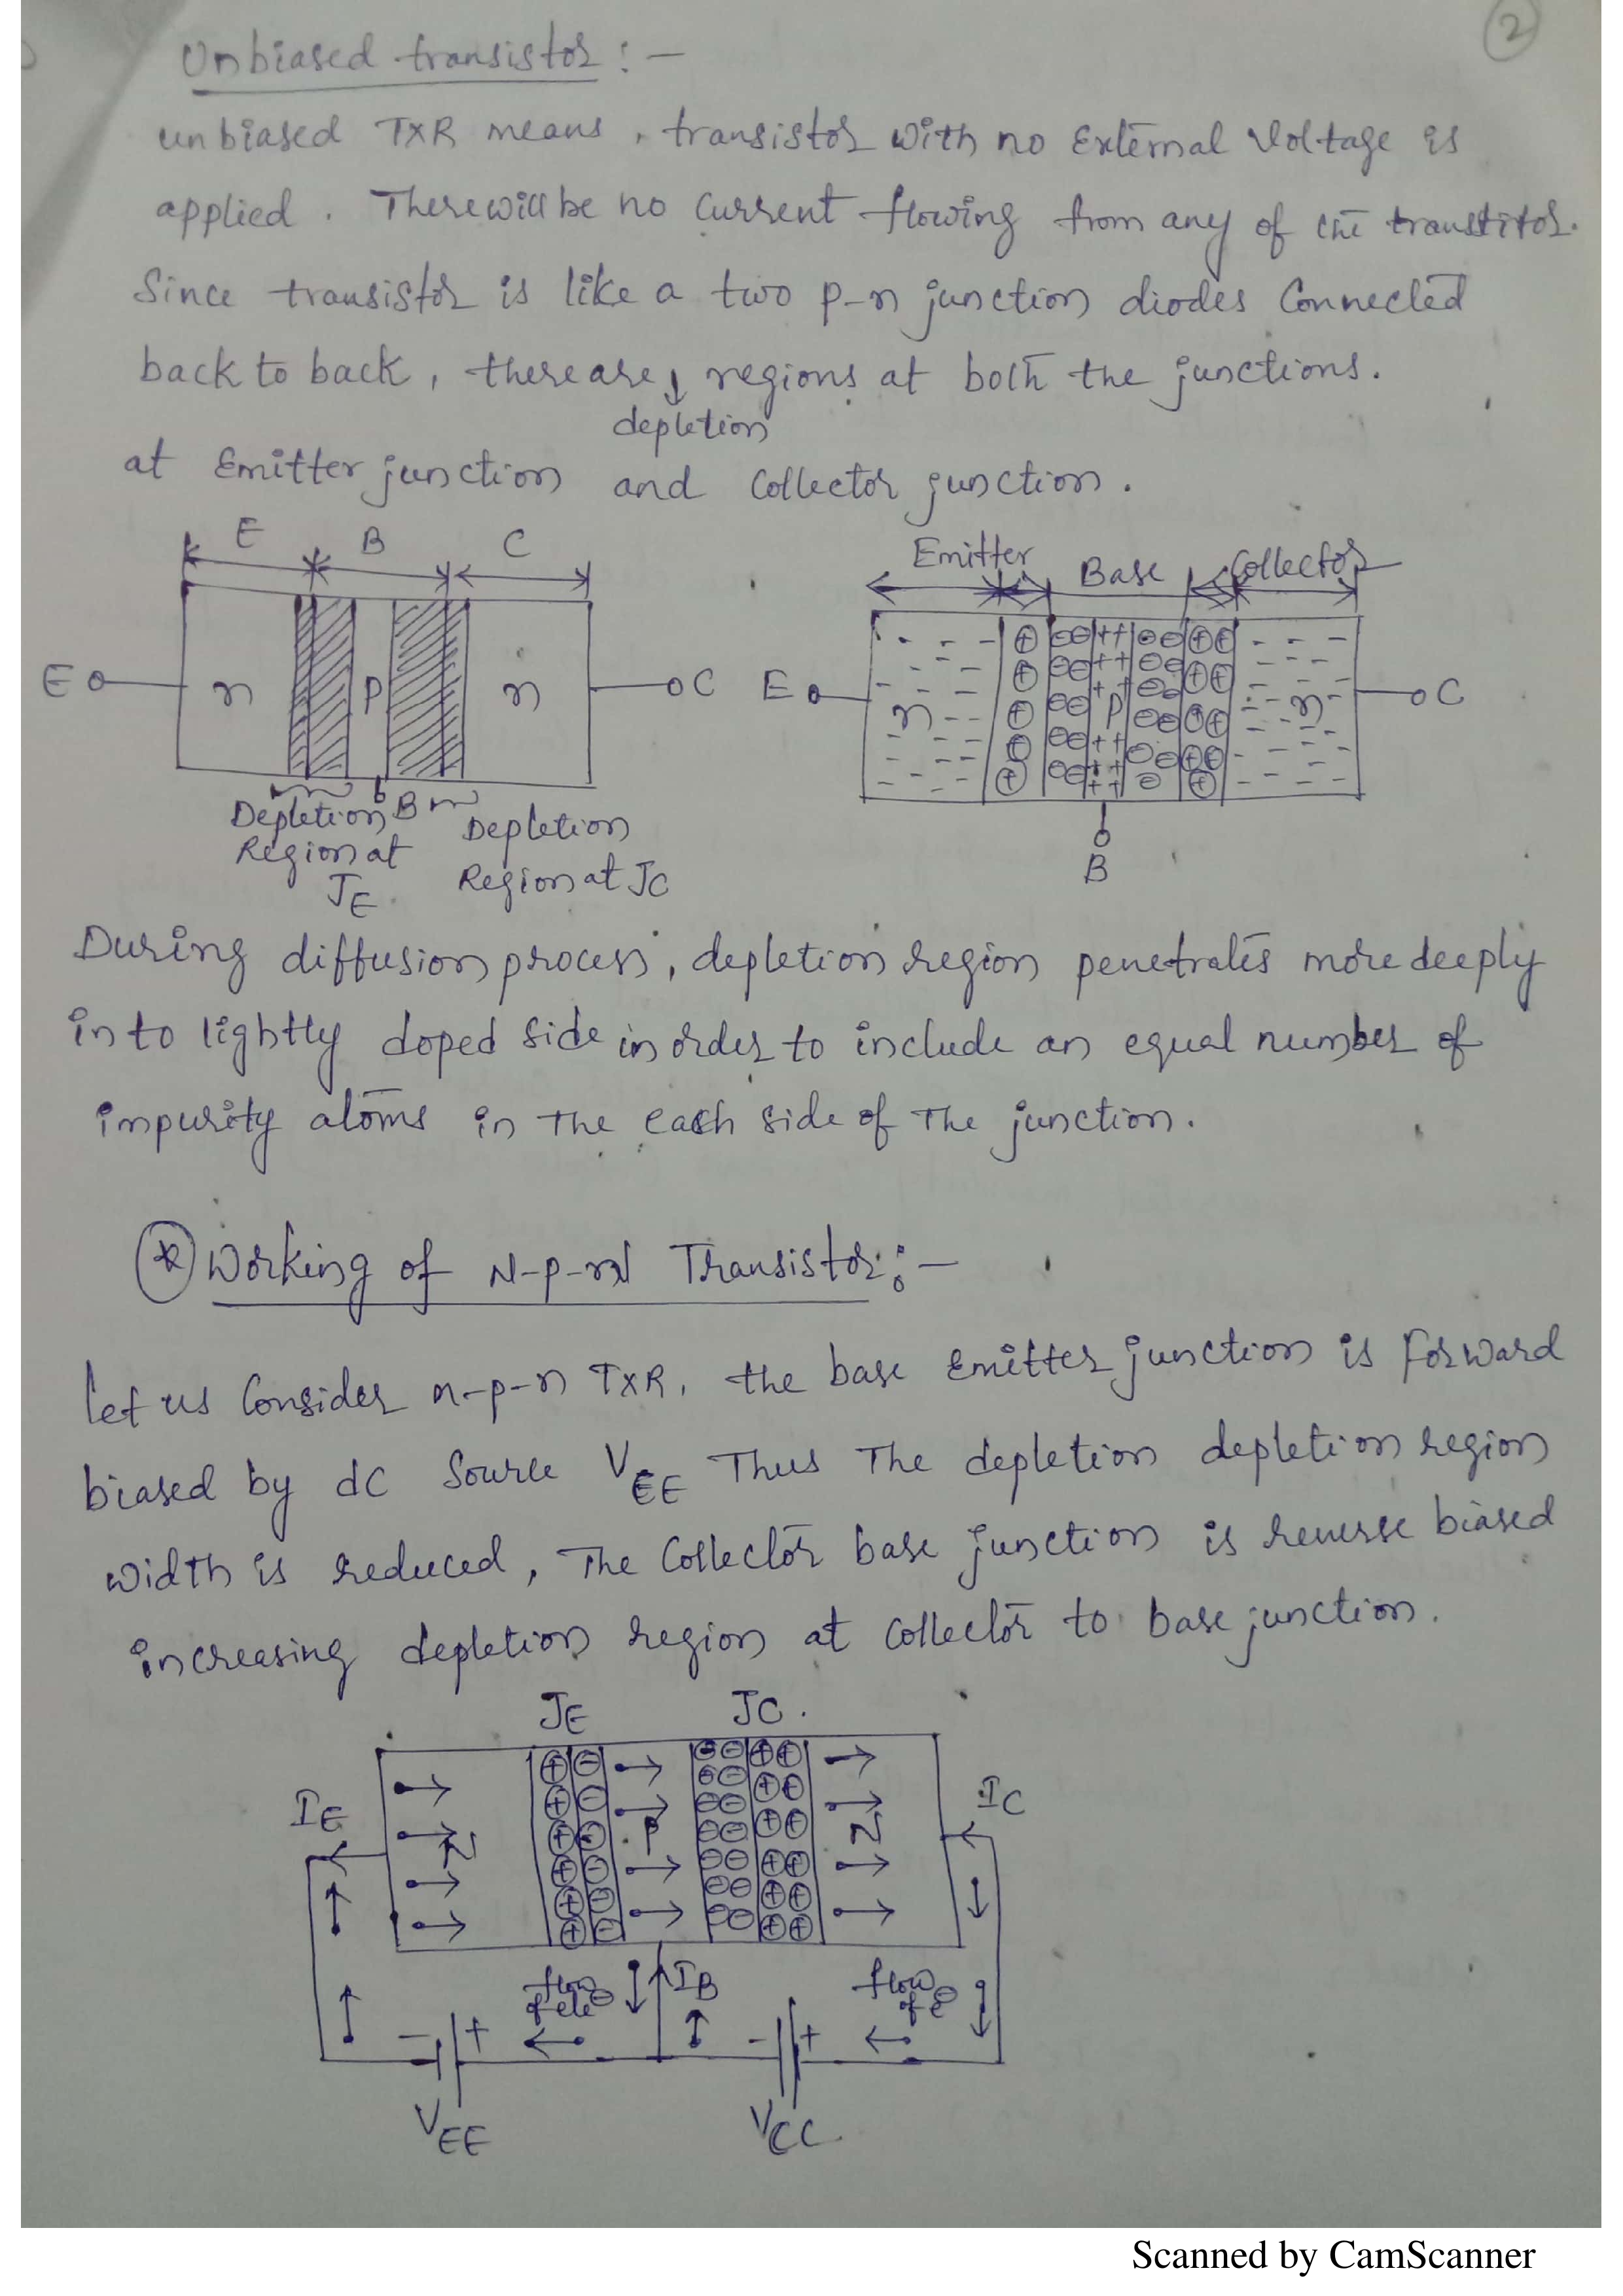 2
Unbiased transistor :-
unbiased TXR means, transistor with no External Voltage is
applied. There will be no current flowing from any of the transtitor.
Since transistor is like a two p-n junction diodes Connected
back to back, there are ↓ regions at both the junctions.
depletion
at Emitter junction and Collector junction.
E B C
Emitter Base Collector
E n P n C
E n P n C
B
B
Depletion Region at JE.
Depletion Region at JC
During diffusion process, depletion region penetrates more deeply
into lightly doped side in order to include an equal number of
impurity atoms in the each side of the junction.
* Working of N-p-n Transistor :-
Let us Consider n-p-n TXR, the base Emitter junction is Forward
biased by dc Source VEE Thus The depletion depletion region
width is reduced, The Collector base junction is reverse biased
increasing depletion region at collector to base junction.
JE JC.
IE N P N IC
flow of ele⊖ IB flow of e⊖
- + - +
VEE VCC
Scanned by CamScanner